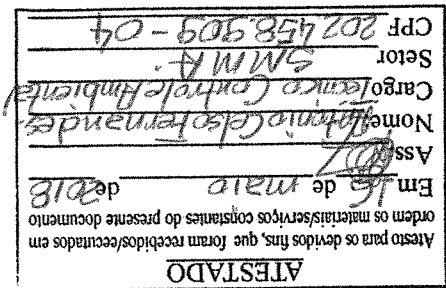 ATESTADO
Atesto para os devidos fins, que foram recebidos/executados em
ordem os materiais/serviços constantes do presente documento
Em 16 de maio de 2018
Ass
Nome Antonio Celso Fernandes
Cargo Técnico Controle Ambiental
Setor SMMA
CPF 202458.909-04